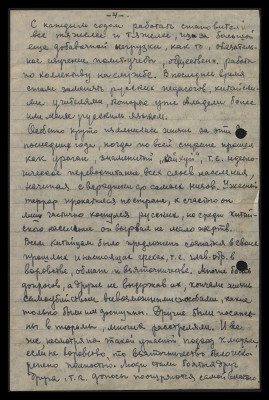 -4-
С каждым годом работать становится
все тяжелее и тяжелее, из-за большой
еще добавочной нагрузки, как то: обязатель-
ное изучение политучебы, общественн. работа
по коллективу на службе. В последнее время
стали заменять русских педагогов, китайски-
ми учителями, которые уже овладели более
или менее русским языком.
Особенно круто изменилась жизнь за эти 3
последние года, когда по всей стране прошел
как ураган, знаменитый т.е. идеоло-
гическое перевоспитание всех слоев населения,
начиная с верхушки до самых низов. Ужасный
террор прокатился по стране, к счастью он
лишь частично коснулся русских, но среди китай-
ского населения он вырвал не мало жертв.
Всем китайцам было предложено сознаться в своих
прошлых и настоящих грехах, т.е. глав. обр. в
воровстве, обмане и взяточничестве. Многие боясь
допросов, а другие не выдержав их, кончали жизнь
самоубийством всевозможными способами, какие
только были им доступны. Другие были посаже-
ны в тюрьмы, многих расстреляли. И все
же, несмотря на такой
если не воровство, то взяточничество
полностью. Люди стали бояться друг
друга, т.к. доносы поощрялись